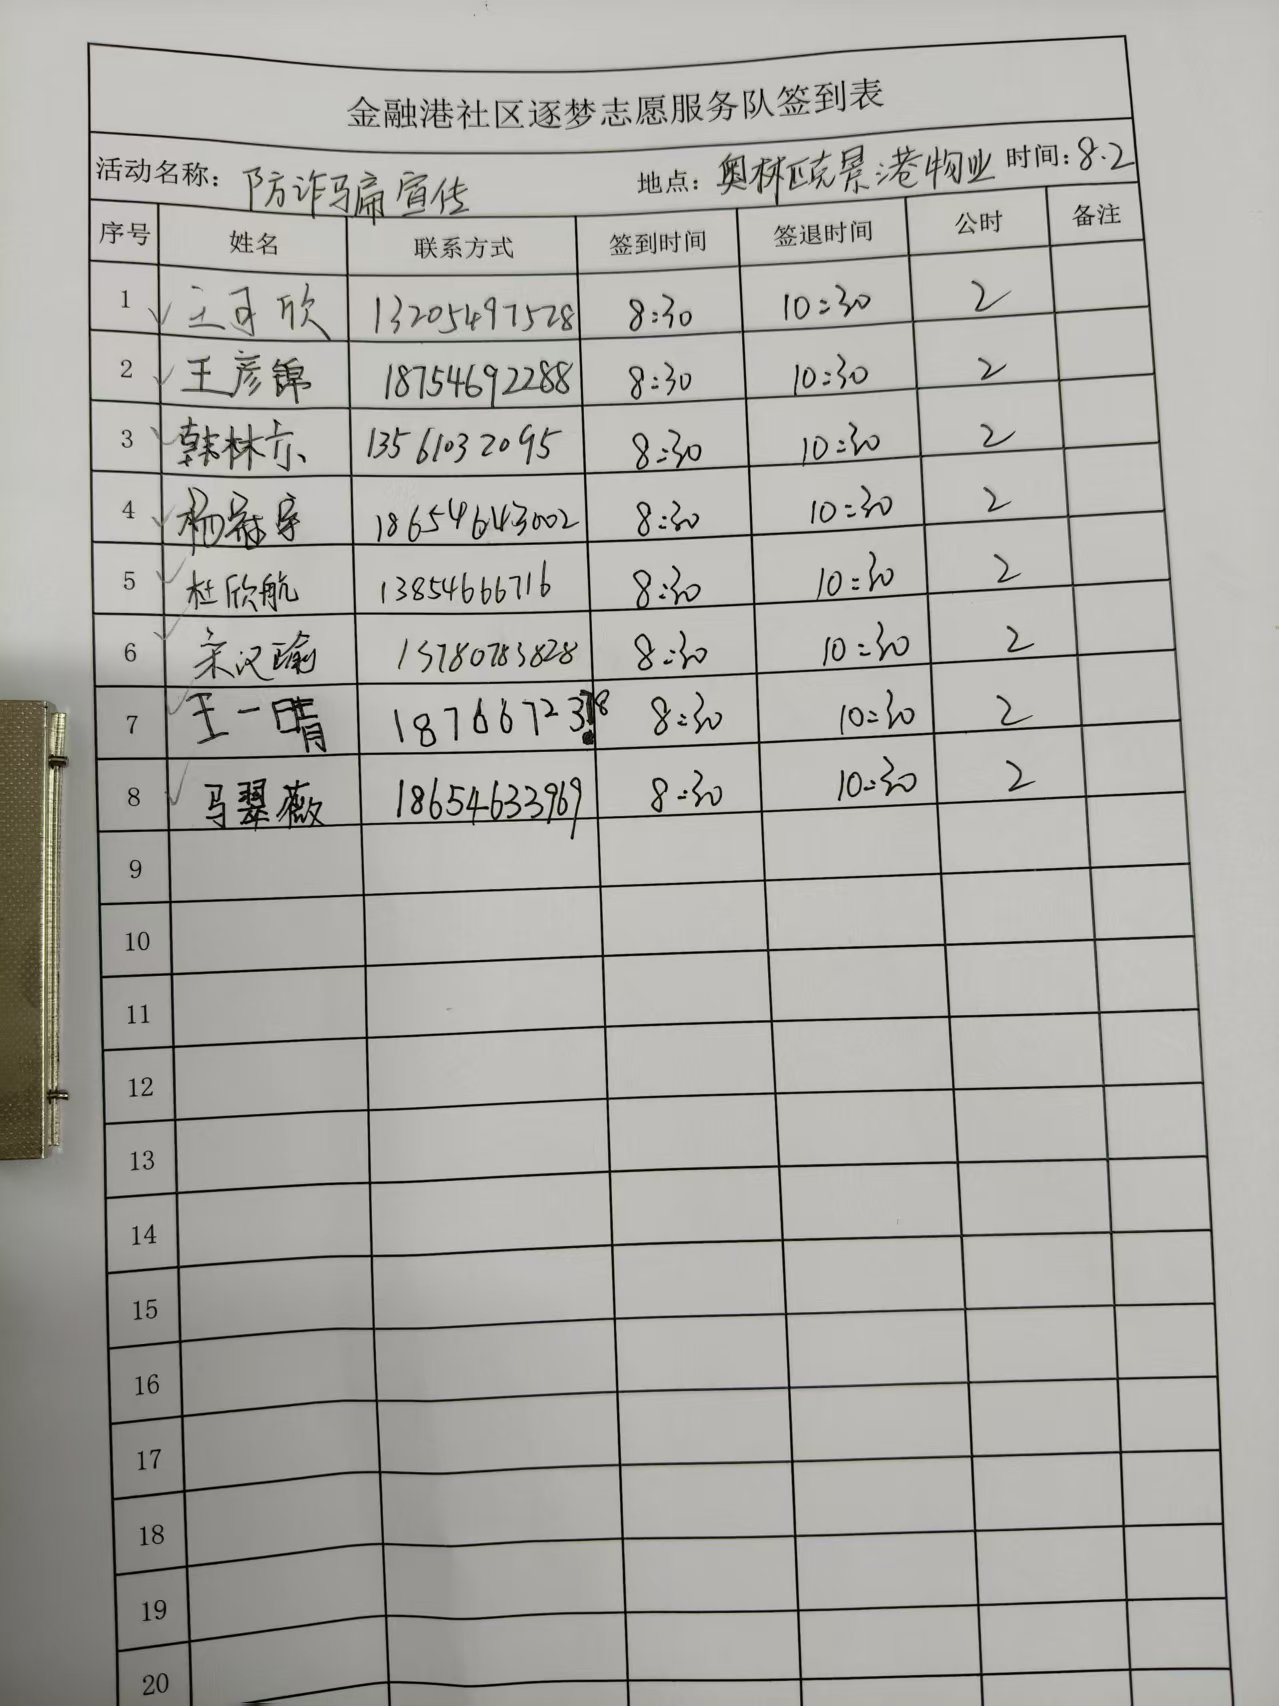 金融港社区逐梦志愿服务队签到表
活动名称: 防诈骗宣传 地点: 奥林匹克景港物业 时间: 8.2
序号 姓名 联系方式 签到时间 签退时间 公时 备注
1 王可欣 13205497528 8:30 10:30 2
2 王彦锦 18754692288 8:30 10:30 2
3 韩林亦 13561032095 8:30 10:30 2
4 杨宇 18654643002 8:30 10:30 2
5 杜欣航 13854666716 8:30 10:30 2
6 宋汉瑜 15780783828 8:30 10:30 2
7 王一晴 8:30 10:30 2
8 马翠薇 18654633969 8:30 10:30 2
9
10
11
12
13
14
15
16
17
18
19
20